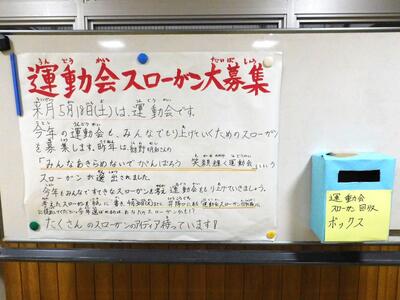 運動会スローガン大募集
来月5月18日(土)は、運動会です。
今年の運動会も、みんなでもり上げていくためのスローガン
を募集します。昨年は、
「みんなあきらめないで がんばろう 笑顔輝く運動会」という
スローガンが選出されました。
今年もみんなですてきなスローガンを考え運動会をもり上げていきましょう。
考えたスローガンを紙に書き、
たくさんのスローガンのアイディア待っています!
運動会
スローガン回収
ボックス